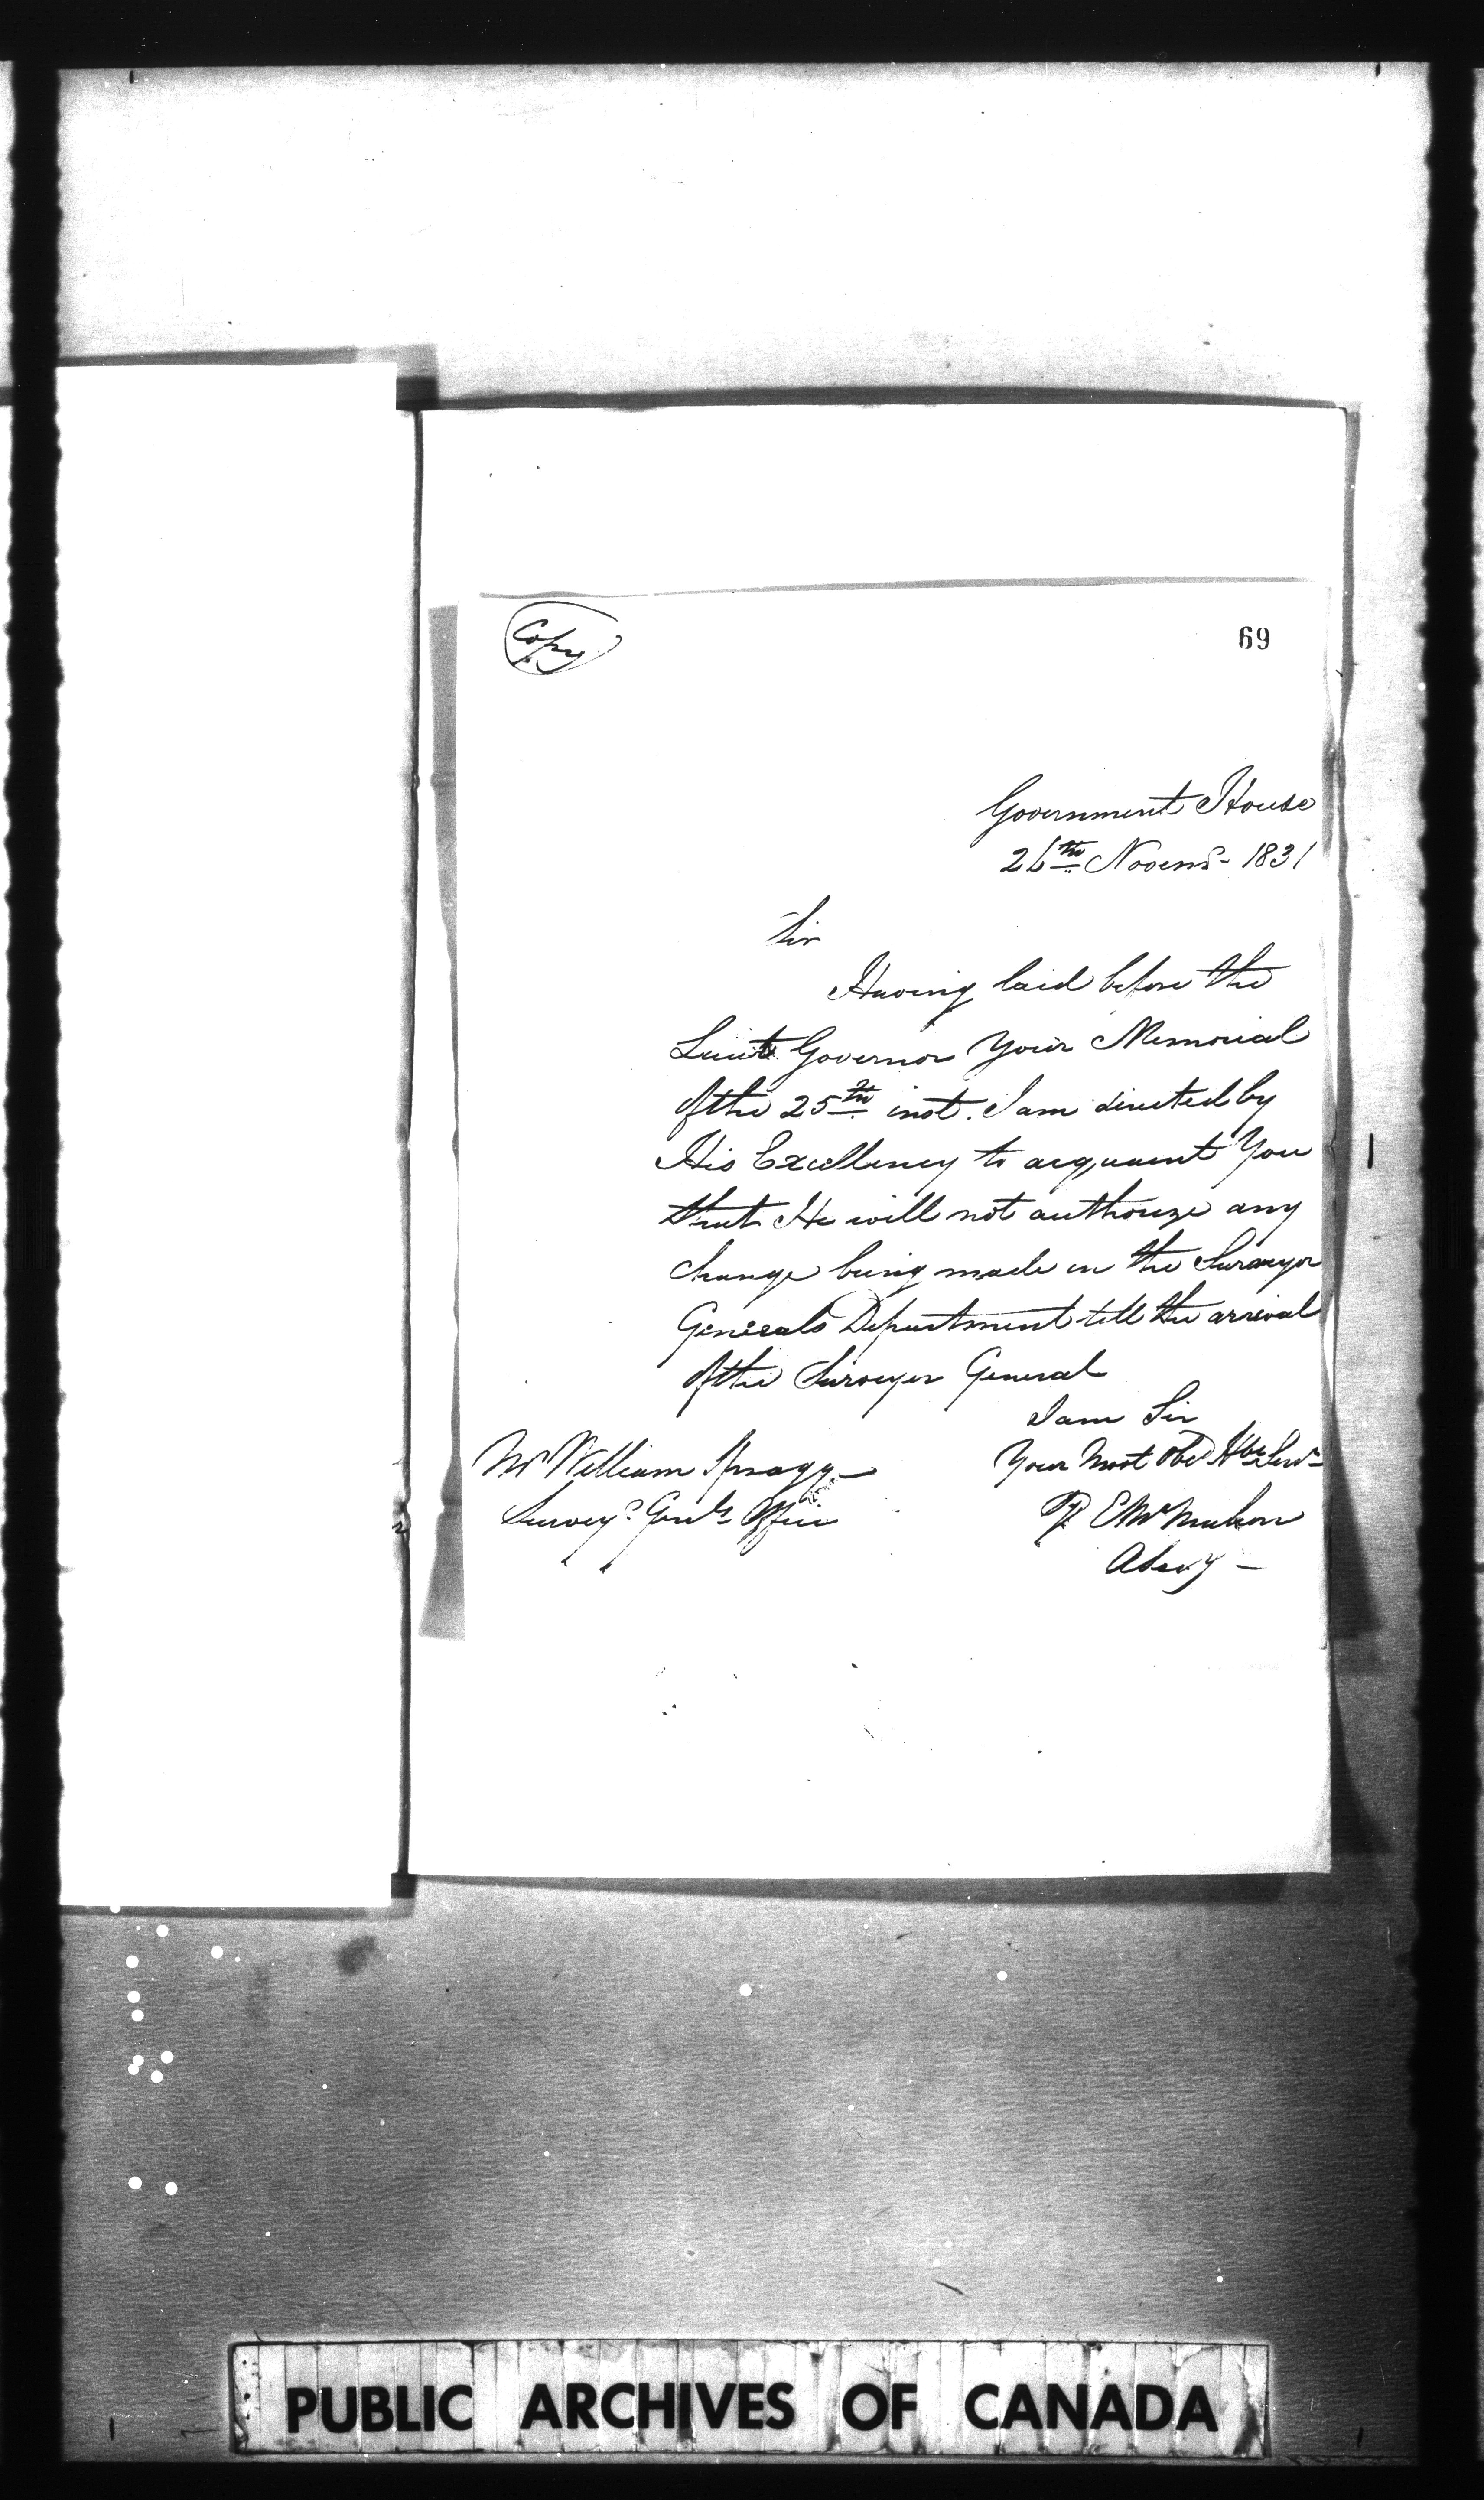 Copy
69
Government House
26th Novemr 1831
Sir
Having laid before the
Lieut Governor Your Memorial
of the 25th inst. I am directed by
His Excellency to acquaint You
that He will not authorize any
change being made in the Surveyor
Generals Department till the arrival
of the Surveyor General
I am Sir
Your Most Obed Hble Servt
Mr William Spragge
Surveyr Genls Office
E McMahon
A Secy
PUBLIC ARCHIVES OF CANADA